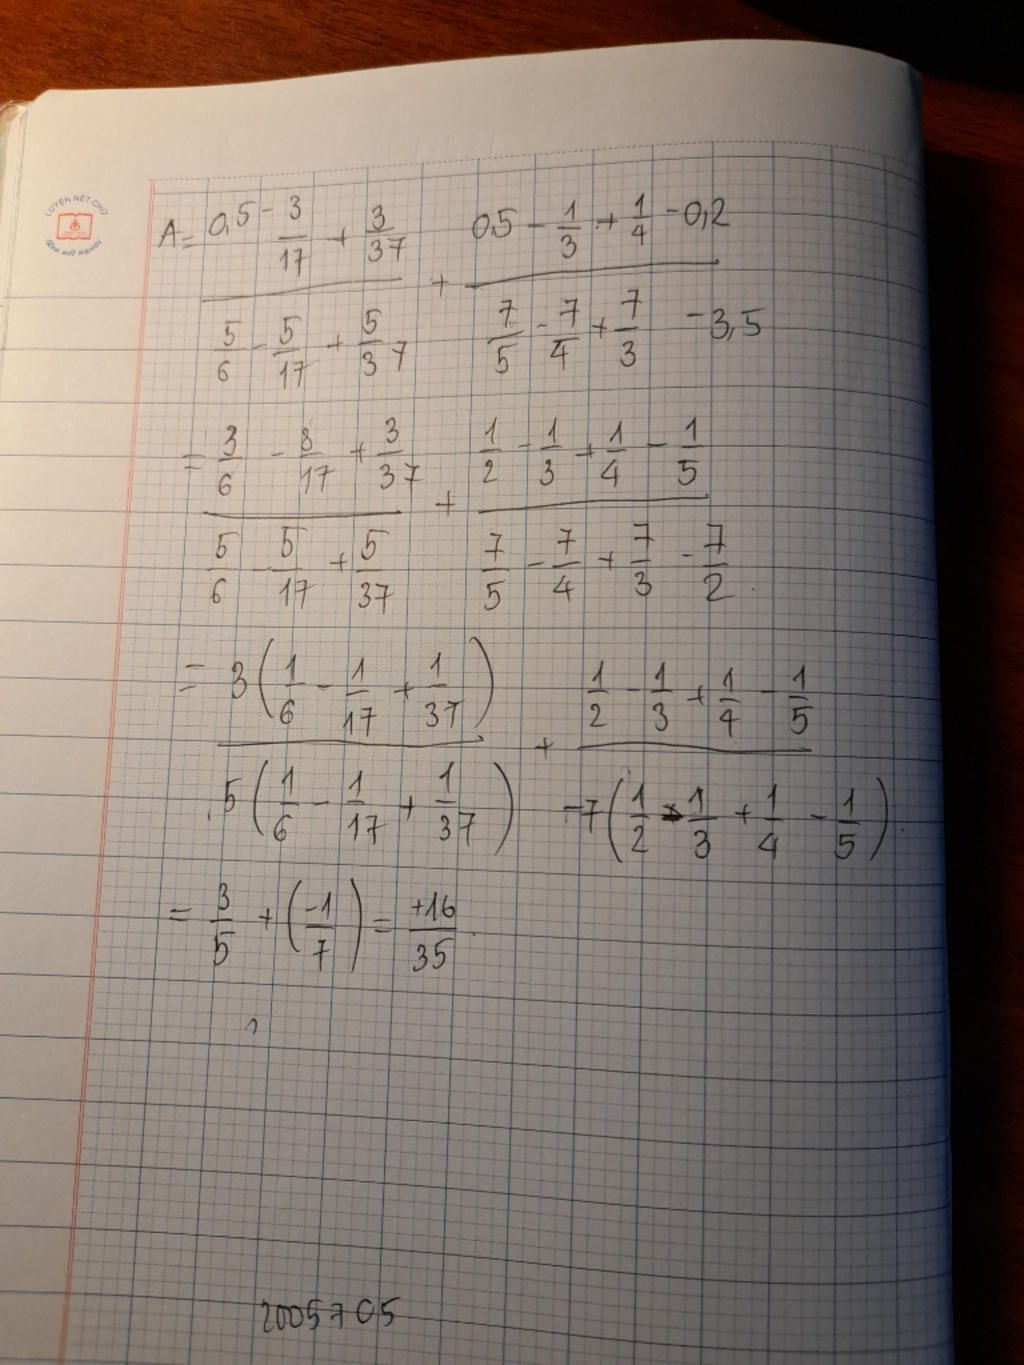 LUYỆN NÉT CHỮ
Rèn nết người
A = (0,5 - 3/17 + 3/37)/(5/6 - 5/17 + 5/37) + (0,5 - 1/3 + 1/4 - 0,2)/(7/5 - 7/4 + 7/3 - 3,5)
= (3/6 - 3/17 + 3/37)/(5/6 - 5/17 + 5/37) + (1/2 - 1/3 + 1/4 - 1/5)/(7/5 - 7/4 + 7/3 - 7/2)
= 3(1/6 - 1/17 + 1/37)/5(1/6 - 1/17 + 1/37) + (1/2 - 1/3 + 1/4 - 1/5)/-7(1/2 - 1/3 + 1/4 - 1/5)
= 3/5 + (-1/7) = +16/35
2005705